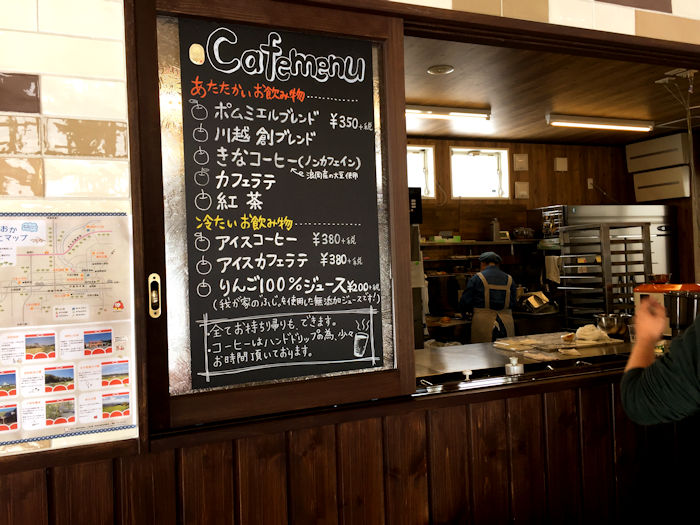 Cafemenu
あたたかいお飲み物
ポムミエルブレンド ¥350+税
川越 創ブレンド
きなコーヒー(ノンカフェイン)
浜岡産の大豆使用
カフェラテ
紅茶
冷たいお飲み物
アイスコーヒー ¥380+税
アイスカフェラテ ¥380+税
りんご100%ジュース ¥200+税
(我が家のふじを使用した無添加ジュースです!)
全てお持ち帰りも、できます。
・コーヒーはハンドドリップの為、少々
お時間頂いております。